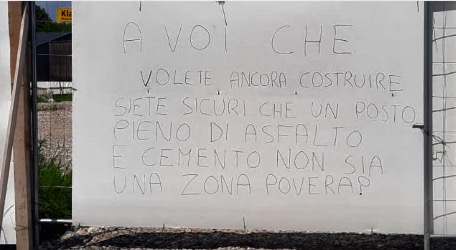 Kla
A VOI CHE
VOLETE ANCORA COSTRUIRE
SIETE SICURI CHE UN POSTO
PIENO DI ASFALTO
E CEMENTO NON SIA
UNA ZONA POVERA?